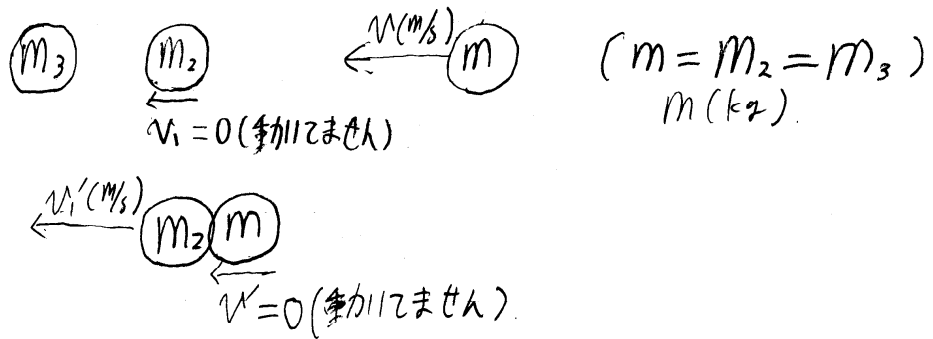 m₃ m₂ v(m/s) m (m=m₂=m₃)
v₁=0(動いてません) m(kg).
v₁′(m/s) m₂ m
v′=0(動いてません).